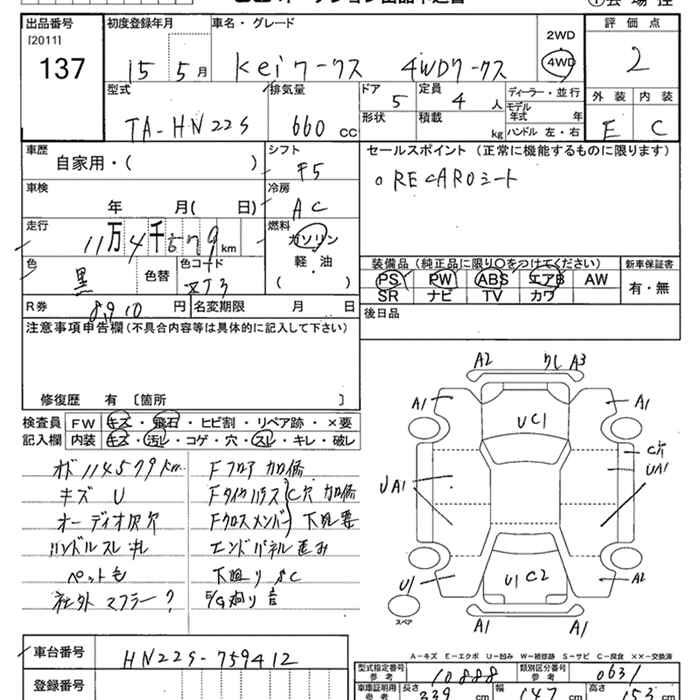 出品番号 初度登録年月 車名・グレード 評価点
[2011]
137
15 5月 Kei ワークス 4WDワークス 2WD 4WD 2
型式 排気量 ドア 定員 ディーラー・並行 外装 内装
TA-HN22S 660 cc 5 4人 モデル年式 年 E C
形状 積載 kg ハンドル 左・右
車歴 シフト セールスポイント (正常に機能するものに限ります)
自家用・( ) F5
車検 冷房 。RECAROシート
年 月( 日) AC
走行 燃料
11万4千579km ガソリン
軽・油
( )
色 色替 色コード 装備品 (純正品に限り○をつけてください) 新車保証書
黒 ZJ3 PS PW ABS エアB AW 有・無
SR ナビ TV カワ
R券 8910円 名変期限 月 日 後日品
注意事項申告欄 (不具合内容等は具体的に記入して下さい)
修復歴 有 〔箇所 〕
検査員 FW キズ・飛石・ヒビ割・リペア跡・×要
記入欄 内装 キズ・汚レ・コゲ・穴・スレ・キレ・破レ
オド 114579km Fフロア 加修
キズ U Fタイヤハウス C穴 加修
オーディオ欠穴 Fクロスメンバー 下処要
ハンドルスレ エンドパネル歪み
ペット毛 下廻りSC
社外 マフラー?
A2 クレ A3
A1 A1
UC1
C穴
UA1 UA1
U1 U1C2 A2
A1 A1
スペア
A-キズ E-エクボ U-凹み W-補修跡 S-サビ C-腐食 ××-交換済
車台番号 HN22S-759412
登録番号
型式指定番号 参考 10888 類別区分番号 参考 0631
車庫証明用 参考 長さ 339 cm 幅 147 cm 高さ 153 cm